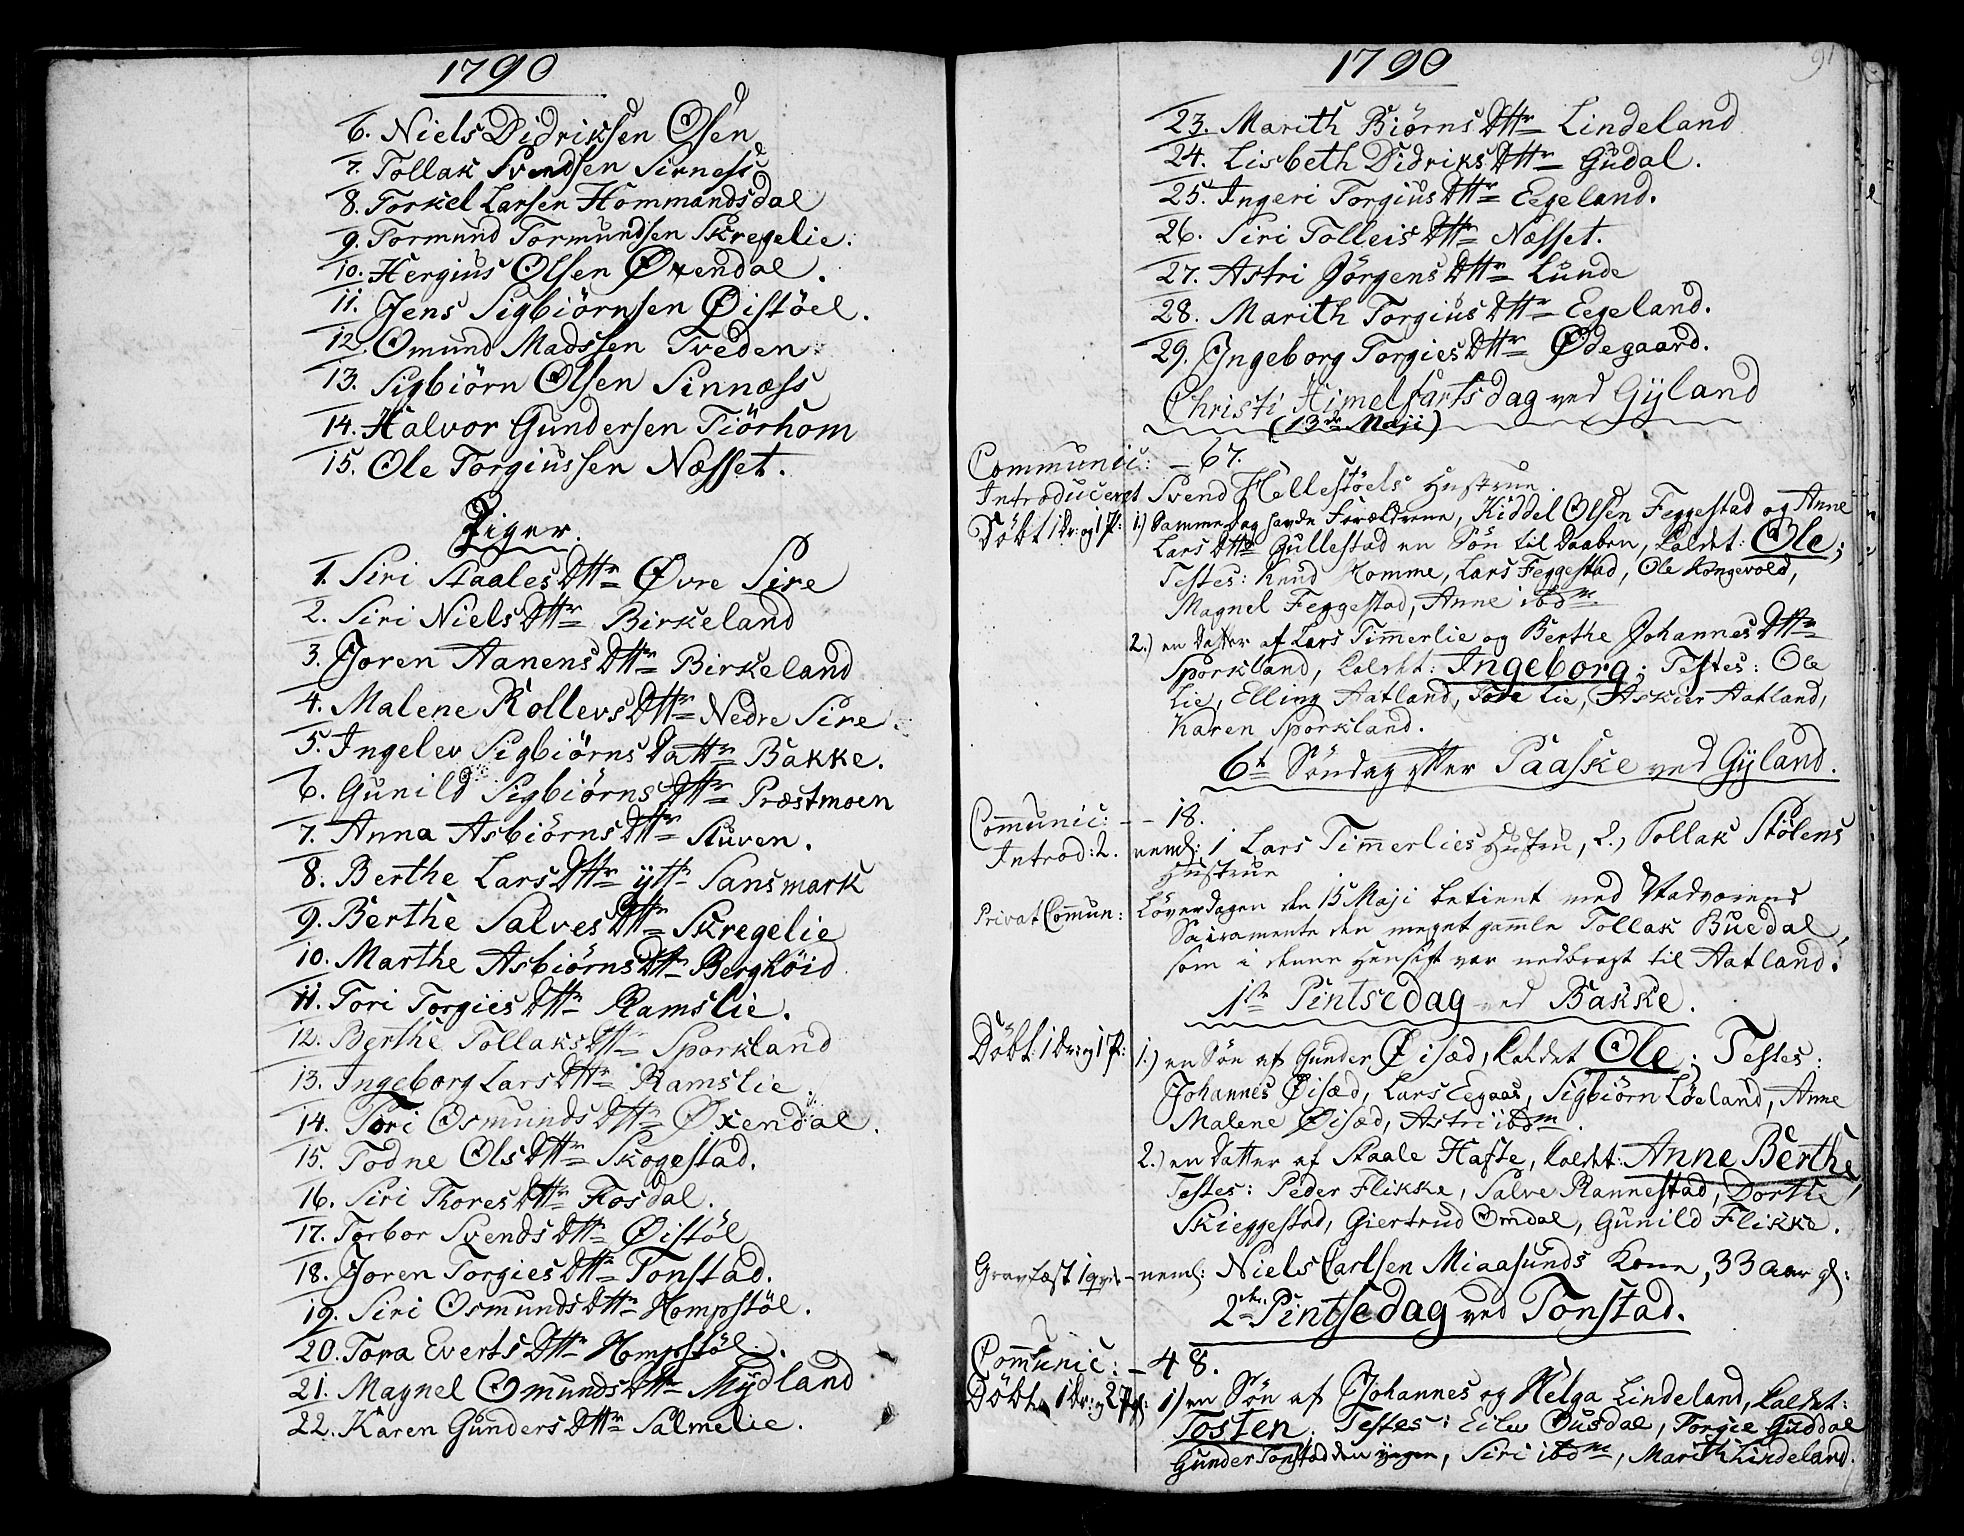 1790
6. Niels Didriksen Øsen
7. Tollak Svendsen Sirness
8. Torkel Larsen Hommandsdal
9. Tormund Tormundsen Skregelie.
10. Hergius Olsen Øxendal.
11. Jens Sigbiörnsen Øistöel.
12. Omund Madssen Tveden.
13. Sigbiörn Olsen Sinnæss
14. Halvor Gundersen Tiörhom
15. Ole Torgiussen Næsset.
Piger.
1. Siri Staales Dttr Øvre Sire
2. Siri Niels Dttr Birkeland
3. Joren Aanens Dttr Birkeland
4. Malene Rollevs Dttr Nedre Sire
5. Ingelev Sigbiörns Dattr Bakke.
6. Gunild Sigbiörns Dttr Præstmoen
7. Anna Asbiörns Dttr Stuven.
8. Berthe Lars Dttr ÿttr Sansmark
9. Berthe Salves Dttr Skregelie
10. Marthe Asbiörns Dttr Berghöid
11. Tori Torgies Dttr Ramslie.
12. Berthe Tollaks Dttr Sporkland
13. Ingeborg Lars Dttr Ramslie.
14. Tori Osmunds Dttr Øxendal.
15. Todne Ols Dttr Skogestad.
16. Siri Thores Dttr Fosdal.
17. Torbor Svends Dttr Øistöl
18. Joren Torgies Dttr Tonstad.
19. Siri Osmunds Dttr Hompstöl.
20. Tora Everts Dttr Hompstöl.
21. Magnel Omunds Dttr Mÿdland
22. Karen Gunders Dttr Salmelie.
1790
91
23. Marith Biörns Dttr Lindeland
24. Lisbeth Didriks Dttr Gudal.
25. Ingeri Torgius Dttr Eegeland.
26. Siri Tolleis Dttr Næsset.
27. Astri Jörgens Dttr Lunde
28. Marith Torgius Dttr Eegeland.
29. Ingeborg Torgies Dttr Ødegaard.
Christi Himelfarts dag ved Gÿland
(13de Maji)
Communic: – 67.
Introduceret Svend Hellestöels Hustrue.
Döbt 1 dr: og 1 P: 1.) Samme dag havde Forældrene, Kiddel Olsen Feggestad og Anne
Lars Dttr Gullestad en Sön til Daaben, kaldet: Ole;
Testes: Knud Homme, Lars Feggestad, Ole Kongevold,
Magnel Feggestad, Anne ibdm
2.) en datter af Lars Timmerlie og Berthe Johannes Dttr
Sporkland, kaldet: Ingeborg; Testes: Ole
Lie, Elling Aatland, Tore Lie, Askier Aatland,
Karen Sporkland.
6t Söndag efter Paaske ved Gÿland.
Communic: – – 18.
Introd: 2. neml: 1 Lars Timmerlies Hustru, 2., Tollak Stölens
Hustrue
Privat Commun: Löverdagen den 15 Maji betient med Nadverens
Sacramente den meget gamle Tollak Buedal,
som i denne Hensigt var nedbragt til Aatland.
1ste Pintsedag ved Bakke.
Döbt. 1 dr: og 1 P: 1.) en Sön af Gunder Øisæd, kaldet Ole; Testes:
Johannes Øisæd, Lars Eegaas, Sigbiörn Löeland, Anne
Malene Øisæd, Astri ibdm.
2.) en datter af Staale Hafte, kaldet: Anne Berthe,
Testes: Peder Flikke, Salve Rannestad, Dorthe
Skieggestad, Giertrud Omdal, Gunild Flikke.
Gravfæst 1 qvi – neml: Niels Carlsen Miaasunds Kone, 33 aar gl:
2den Pintsedag ved Tonstad.
Communic: – 48.
Döbt. 1 dr: og 2 Pg: 1) en Sön af Johannes og Helga Lindeland, kaldet:
Tosten. Testes: Eilev Ousdal, Torgie Guddal
Gunder Tonstad den yngre, Siri ibdm, Marith Lindeland.